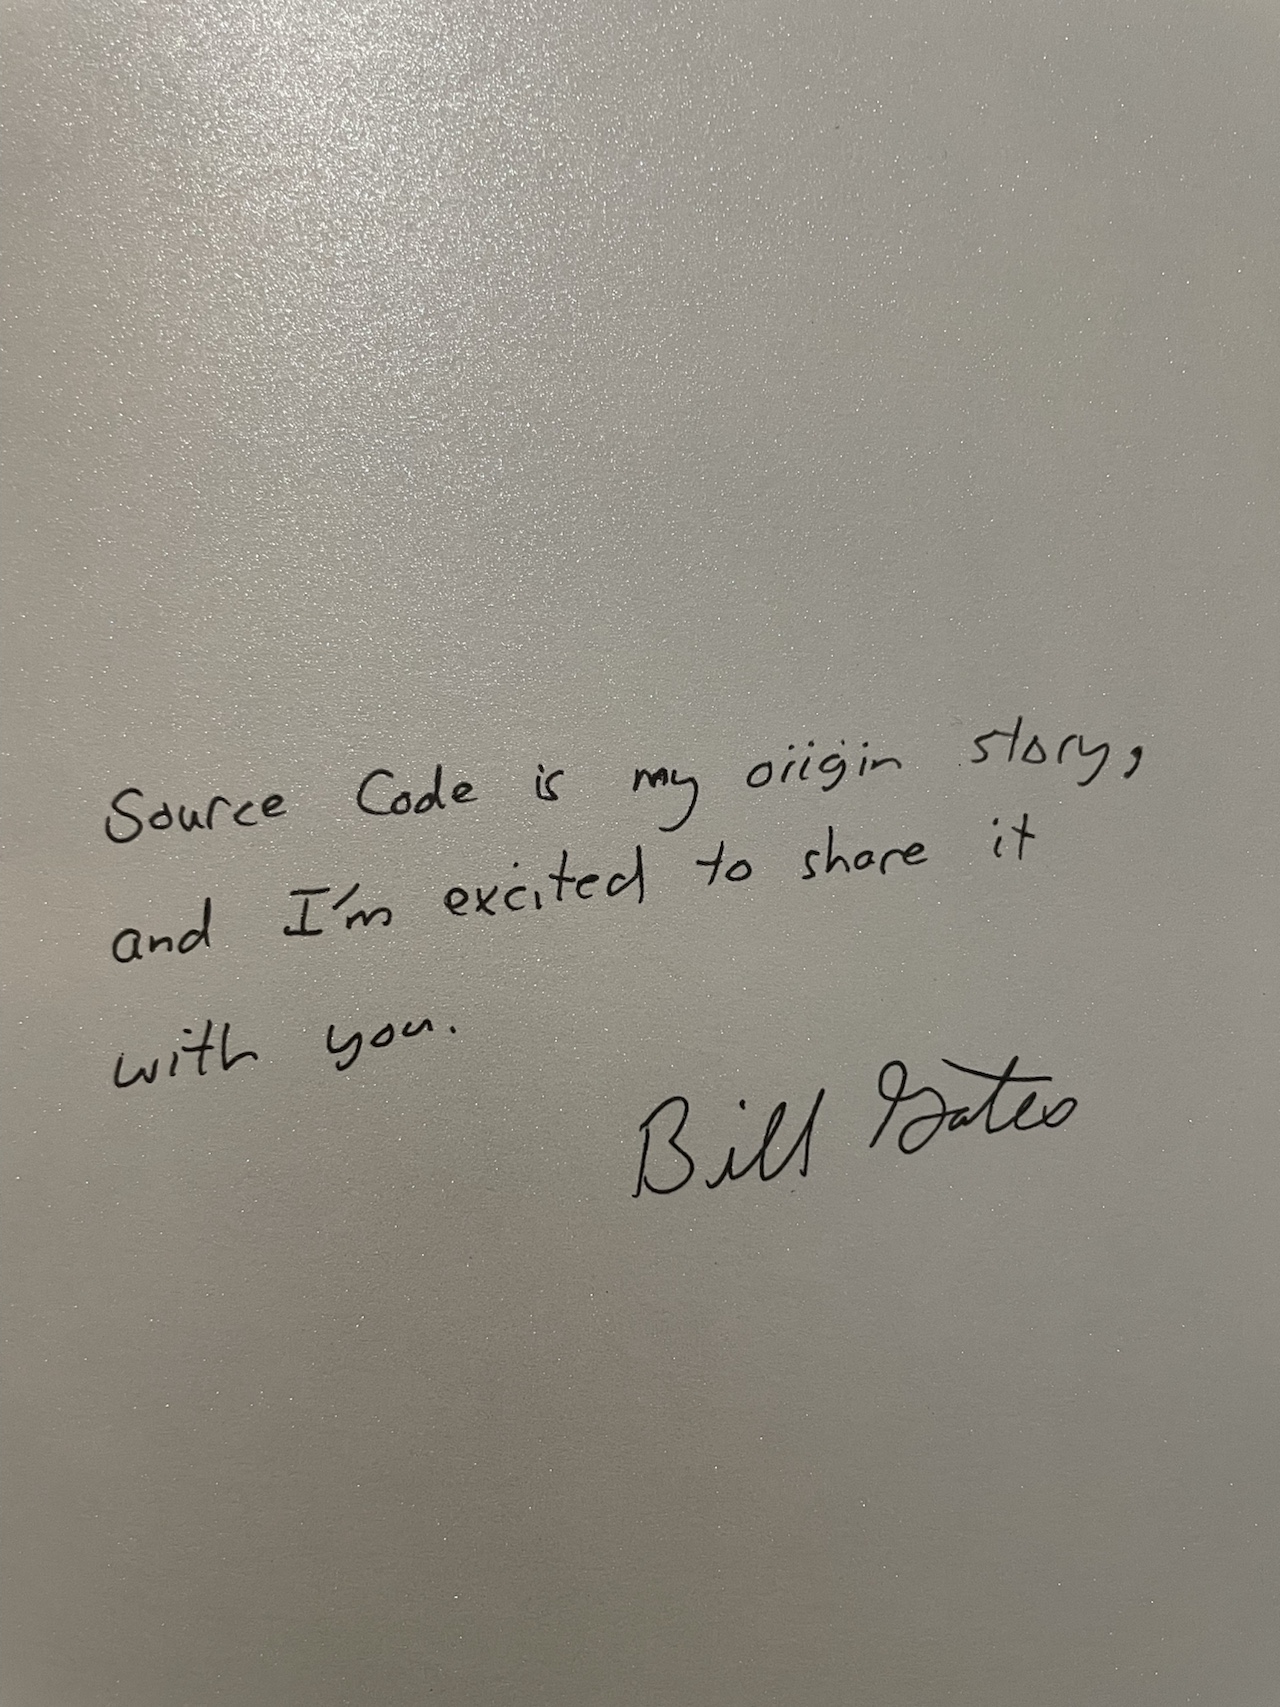 Source Code is my origin story,
and I'm excited to share it
with you.
Bill Gates